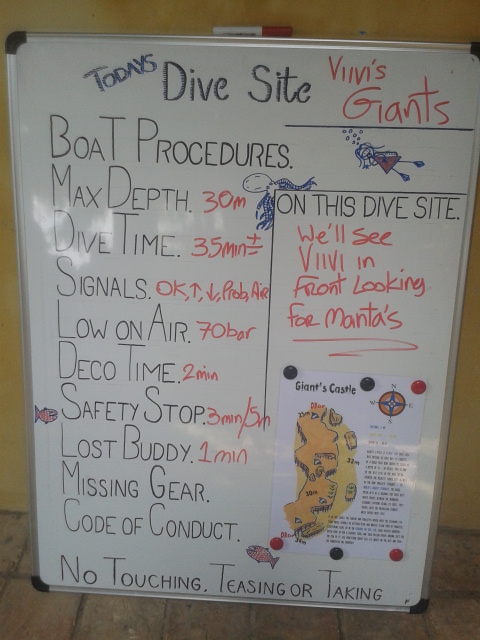 TODAYS Dive Site Viivi's Giants
BOAT PROCEDURES.
MAX DEPTH. 30m
DIVE TIME. 35min±
SIGNALS. OK,↑,↓, Prob, Air
LOW ON AIR. 70bar
DECO TIME. 2min
SAFETY STOP. 3min/5m
LOST BUDDY. 1min
MISSING GEAR.
CODE OF CONDUCT.
ON THIS DIVE SITE.
We'll see
Viivi in
Front Looking
For Manta's
Giant's Castle
N
32m
30m
NO TOUCHING, TEASING OR TAKING